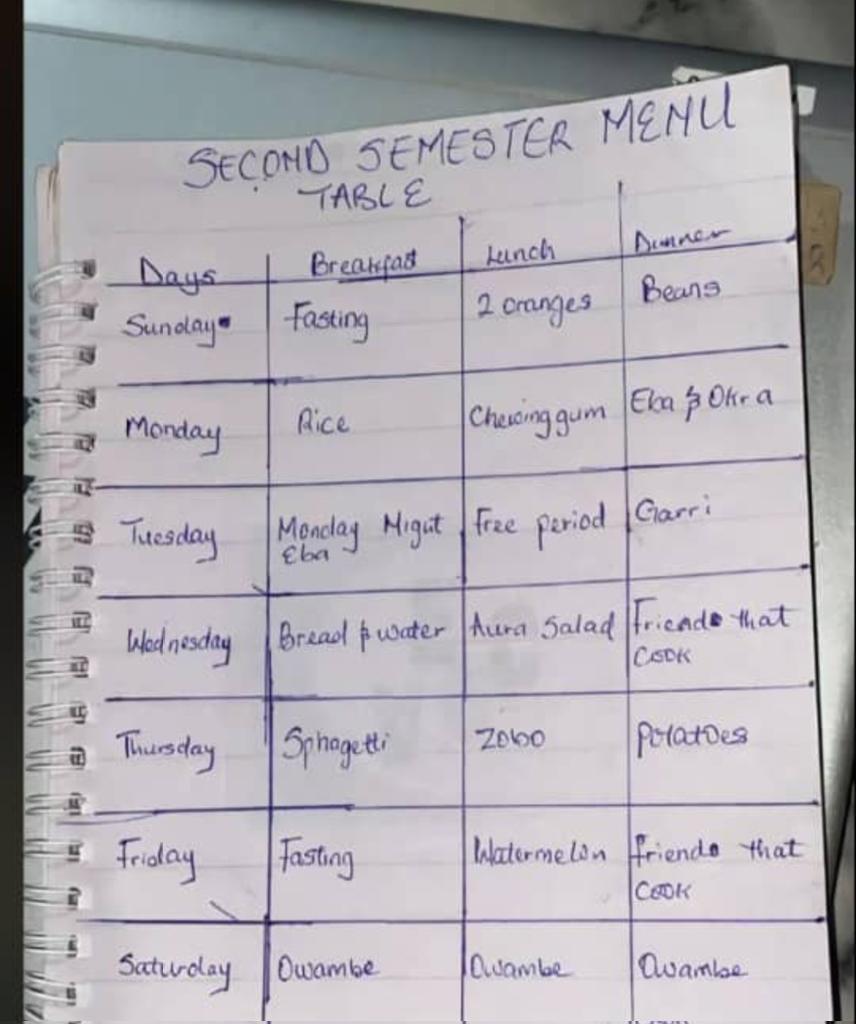 SECOND SEMESTER MENU
TABLE
Days Breakfast Lunch Dinner
Sunday Fasting 2 oranges Beans
Monday Rice Chewing gum Eba & Okra
Tuesday Monday Night Free period Garri
Eba
Wednesday Bread & water Aura Salad Friends that
Cook
Thursday Sphagetti Zobo Potatoes
Friday Fasting Watermelon friends that
Cook
Saturday Owambe Owambe Owambe